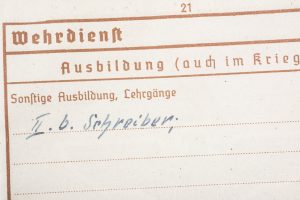 21
Wehrdienst
Ausbildung (auch im Krieg
Sonstige Ausbildung, Lehrgänge
II. b. Schreiber;